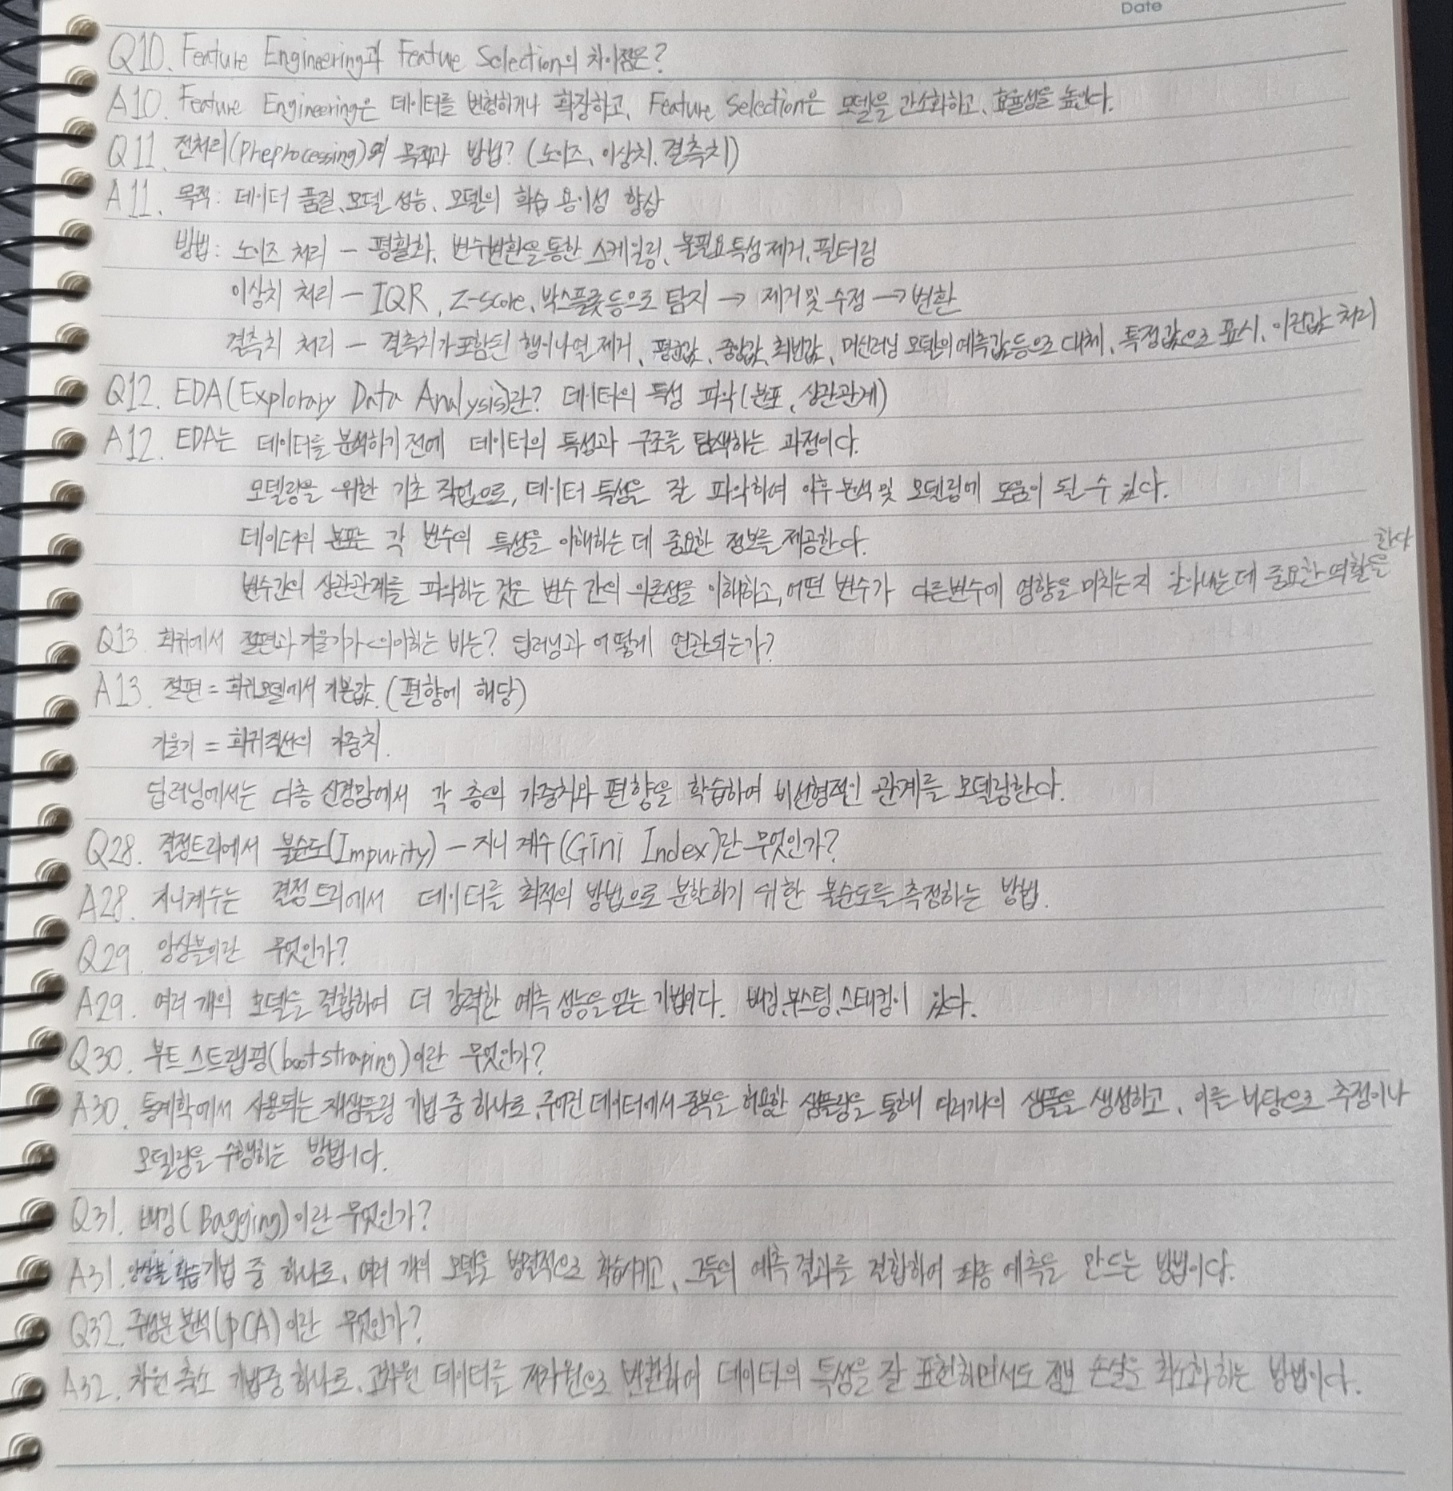 Date
Q10. Feature Engineering과 Feature Selection의 차이점은?
A10. Feature Engineering은 데이터를 변형하거나 확장하고, Feature Selection은 모델을 간소화하고, 효율성을 높인다.
Q11. 전처리(Preprocessing)의 목적과 방법? (노이즈, 이상치, 결측치)
A11. 목적: 데이터 품질, 모델 성능, 모델의 학습 용이성 향상
방법: 노이즈 처리 - 평활화, 변수변환을 통한 스케일링, 불필요 특성 제거, 필터링
이상치 처리 - IQR, Z-score, 박스플롯 등으로 탐지 → 제거 및 수정 → 변환
결측치 처리 - 결측치가 포함된 행이나 열 제거, 평균값, 중앙값, 최빈값, 머신러닝 모델의 예측값 등으로 대체, 특정값으로 표시, 이진값 처리
Q12. EDA(Explorary Data Analysis)란? 데이터의 특성 파악(분포, 상관관계)
A12. EDA는 데이터를 분석하기 전에 데이터의 특성과 구조를 탐색하는 과정이다.
모델링을 위한 기초 작업으로, 데이터 특성을 잘 파악하여 이후 분석 및 모델링에 도움이 될 수 있다.
데이터의 분포는 각 변수의 특성을 이해하는 데 중요한 정보를 제공한다.
변수간의 상관관계를 파악하는 것은 변수 간의 의존성을 이해하고, 어떤 변수가 다른변수에 영향을 미치는지 알아내는데 중요한 역할을 한다
Q13. 회귀에서 절편과 기울기가 의미하는 바는? 딥러닝과 어떻게 연관되는가?
A13. 절편 = 회귀모델에서 기본값. (편향에 해당)
기울기 = 회귀직선의 가중치.
딥러닝에서는 다층 신경망에서 각 층의 가중치와 편향을 학습하여 비선형적인 관계를 모델링한다.
Q28. 결정트리에서 불순도(Impurity) - 지니 계수(Gini Index)란 무엇인가?
A28. 지니계수는 결정트리에서 데이터를 최적의 방법으로 분할하기 위한 불순도를 측정하는 방법.
Q29. 앙상블이란 무엇인가?
A29. 여러 개의 모델을 결합하여 더 강력한 예측 성능을 얻는 기법이다. 배깅, 부스팅, 스태킹이 있다.
Q30. 부트 스트랩핑(bootstraping)이란 무엇인가?
A30. 통계학에서 사용되는 재샘플링 기법 중 하나로, 주어진 데이터에서 중복을 허용한 샘플링을 통해 여러개의 샘플을 생성하고, 이를 바탕으로 추정이나
모델링을 수행하는 방법이다.
Q31. 배깅(Bagging)이란 무엇인가?
A31. 앙상블 학습 기법 중 하나로, 여러 개의 모델을 병렬적으로 학습시키고, 그들의 예측 결과를 결합하여 최종 예측을 만드는 방법이다.
Q32. 주성분 분석(PCA)이란 무엇인가?
A32. 차원 축소 기법중 하나로, 고차원 데이터를 저차원으로 변환하여 데이터의 특성을 잘 표현하면서도 정보 손실을 최소화하는 방법이다.